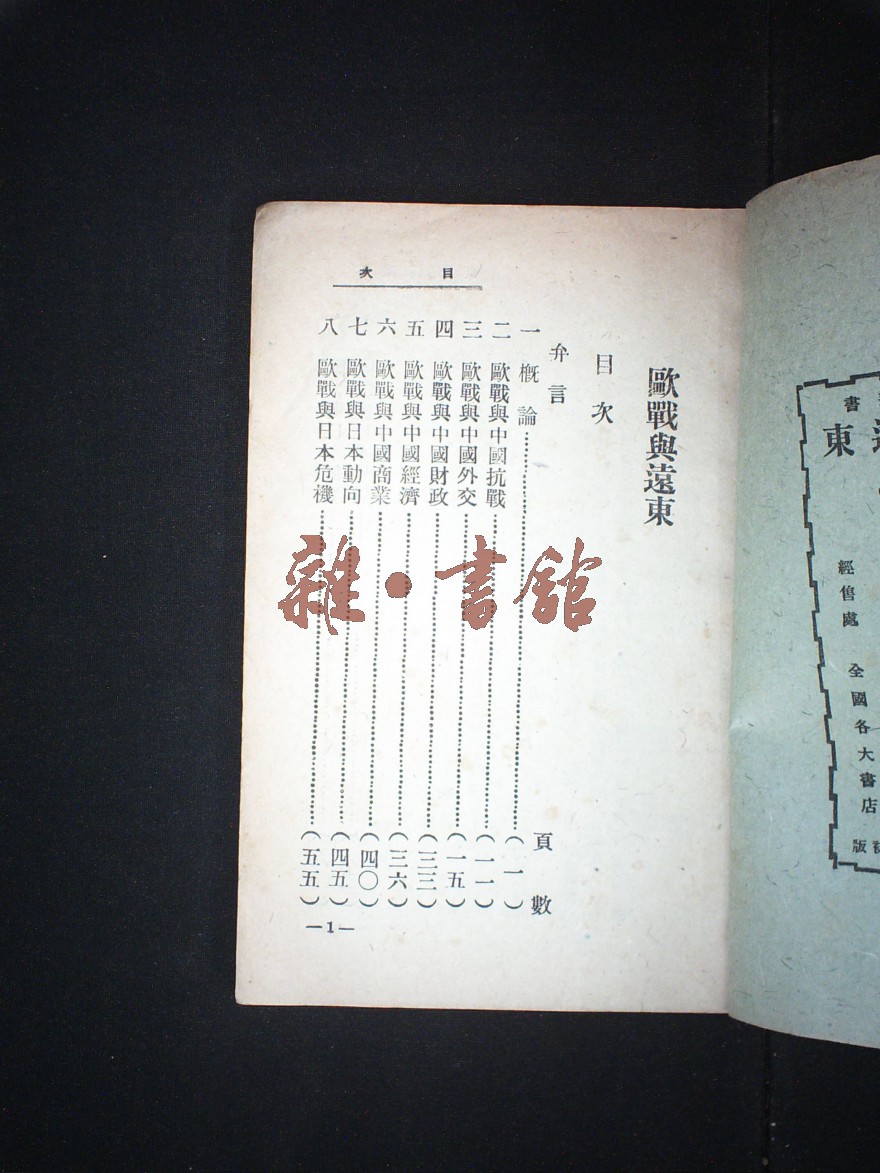 目次
歐戰與遠東
目次
弁言
頁數
一 概論……(一)
二 歐戰與中國抗戰……(一一)
三 歐戰與中國外交……(一五)
四 歐戰與中國財政……(三三)
五 歐戰與中國經濟……(三六)
六 歐戰與中國商業……(四〇)
七 歐戰與日本動向……(四五)
八 歐戰與日本危機……(五五)
—1—
雜·書館
書
東
經售處 全國各大書店
版